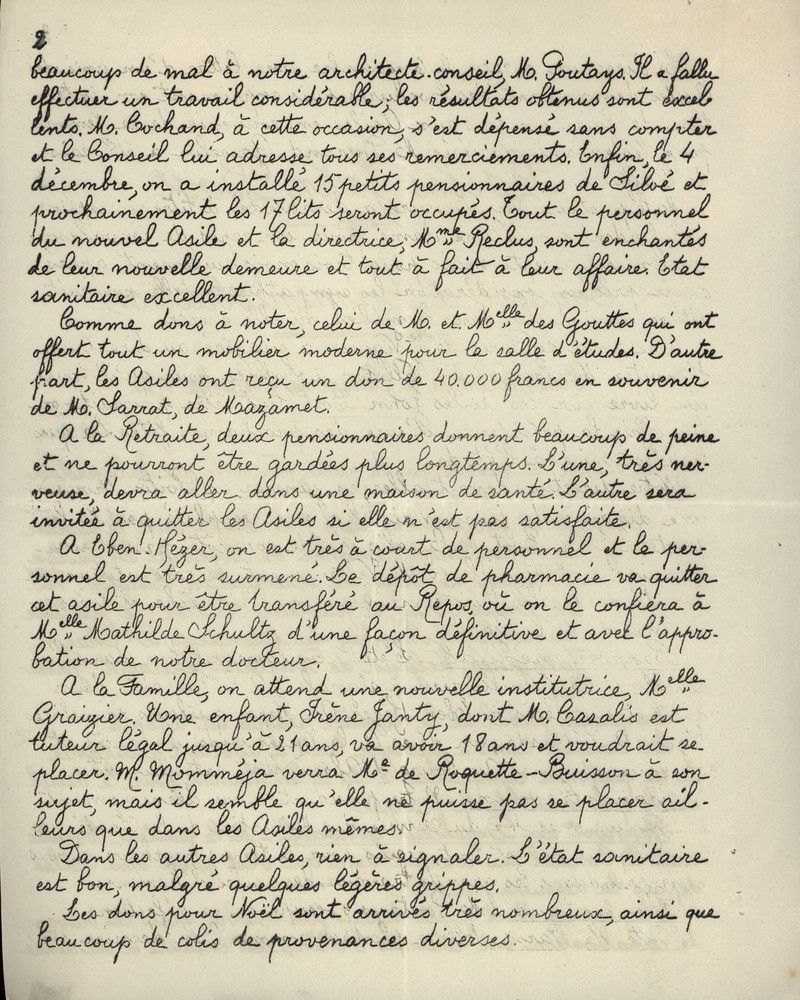 2
beaucoup de mal à notre architecte-conseil, M. Poutays. Il a fallu
effectuer un travail considérable; les résultats obtenus sont excel
lents. M. Cochand, à cette occasion, s'est dépensé sans compter
et le Conseil lui adresse tous ses remerciements. Enfin, le 4
décembre, on a installé 15 petits pensionnaires de Siloé et
prochainement les 17 lits seront occupés. Tout le personnel
du nouvel Asile et la directrice, Mme Reclus, sont enchantés
de leur nouvelle demeure et tout à fait à leur affaire. Etat
sanitaire excellent.
Comme dons à noter, celui de M. et Melle des Gouttes qui ont
offert tout un mobilier moderne pour la salle d'études. D'autre
part, les Asiles ont reçu un don de 40.000 francs en souvenir
de M. Sarrat, de Mazamet.
A la Retraite, deux pensionnaires donnent beaucoup de peine
et ne pourront être gardées plus longtemps. L'une, très ner-
veuse, devra aller dans une maison de santé. L'autre sera
invitée à quitter les Asiles si elle n'est pas satisfaite.
A Eben-Hézer, on est très à court de personnel et le per-
sonnel est très surmené. Le dépôt de pharmacie va quitter
cet asile pour être transféré au Repos, où on le confiera à
Melle Mathilde Schultz d'une façon définitive et avec l'appro-
bation de notre docteur.
A la Famille, on attend une nouvelle institutrice, Melle
Graizier. Une enfant, Irène Janty, dont M. Casalis est
tuteur légal jusqu'à 21 ans, va avoir 18 ans et voudrait se
placer. M. Momméja verra Me de Roquette-Buisson à son
sujet, mais il semble qu'elle ne puisse pas se placer ail-
leurs que dans les Asiles mêmes.
Dans les autres Asiles, rien à signaler. L'état sanitaire
est bon, malgré quelques légères grippes.
Les dons pour Noël sont arrivés très nombreux, ainsi que
beaucoup de colis de provenances diverses.